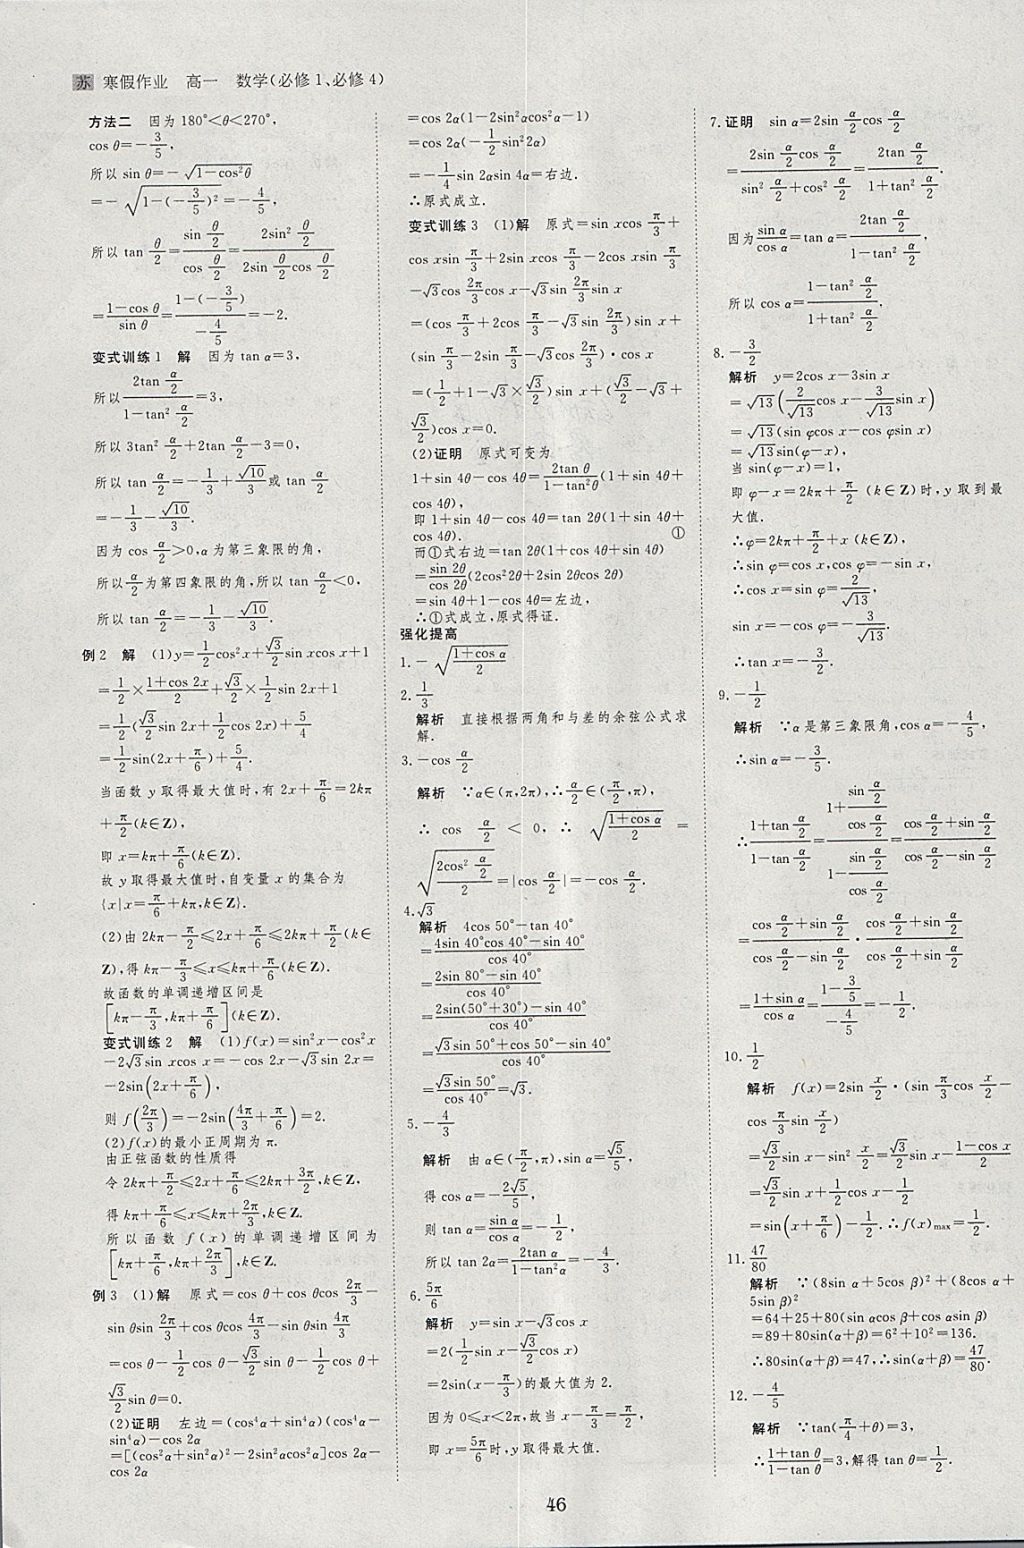 苏 寒假作业 高一 数学(必修1、必修4)
方法二 因为 180°<θ<270°,
cos θ=-3/5,
所以 sin θ=-√(1-cos²θ)
=-√(1-(-3/5)²)=-4/5,
所以 tan θ/2=(sin θ/2)/(cos θ/2)=(2sin² θ/2)/(2sin θ/2 cos θ/2)
=(1-cos θ)/(sin θ)=(1-(-3/5))/(-4/5)=-2.
变式训练1 解 因为 tan α=3,
所以 (2tan α/2)/(1-tan² α/2)=3,
所以 3tan² α/2+2tan α/2-3=0,
所以 tan α/2=-1/3+√10/3 或 tan α/2
=-1/3-√10/3.
因为 cos α/2>0,α 为第三象限的角,
所以 α/2 为第四象限的角,所以 tan α/2<0,
所以 tan α/2=-1/3-√10/3.
例2 解 (1)y=1/2cos²x+√3/2 sin xcos x+1
=1/2×(1+cos 2x)/2+√3/2×1/2 sin 2x+1
=1/2(√3/2 sin 2x+1/2 cos 2x)+5/4
=1/2 sin(2x+π/6)+5/4.
当函数 y 取得最大值时,有 2x+π/6=2kπ
+π/2(k∈Z),
即 x=kπ+π/6(k∈Z).
故 y 取得最大值时,自变量 x 的集合为
{x|x=π/6+kπ,k∈Z}.
(2)由 2kπ-π/2≤2x+π/6≤2kπ+π/2(k∈
Z),得 kπ-π/3≤x≤kπ+π/6(k∈Z).
故函数的单调递增区间是
[kπ-π/3,kπ+π/6](k∈Z).
变式训练2 解 (1)f(x)=sin²x-cos²x
-2√3sin xcos x=-cos 2x-√3sin 2x=
-2sin(2x+π/6),
则 f(2π/3)=-2sin(4π/3+π/6)=2.
(2)f(x)的最小正周期为 π.
由正弦函数的性质得
令 2kπ+π/2≤2x+π/6≤2kπ+3π/2,k∈Z.
得 kπ+π/6≤x≤kπ+2π/3,k∈Z.
所以函数 f(x)的单调递增区间为
[kπ+π/6,kπ+2π/3],k∈Z.
例3 (1)解 原式=cos θ+cos θcos 2π/3-
sin θsin 2π/3+cos θcos 4π/3-sin θsin 4π/3
=cos θ-1/2cos θ-√3/2 sin θ-1/2cos θ+
√3/2 sin θ=0.
(2)证明 左边=(cos⁴α+sin⁴α)(cos⁴α-
sin⁴α)-cos 2α
=[(cos²α+sin²α)²-2sin²αcos²α]cos 2α-
cos 2α
=cos 2α(1-2sin²αcos²α-1)
=cos 2α(-1/2 sin²2α)
=-1/4 sin 2αsin 4α=右边.
∴原式成立.
变式训练3 (1)解 原式=sin xcos π/3+
cos xsin π/3+2sin xcos π/3-2cos xsin π/3
-√3cos 2π/3 cos x-√3sin 2π/3 sin x
=(cos π/3+2cos π/3-√3sin 2π/3)sin x+
(sin π/3-2sin π/3-√3cos 2π/3)·cos x
=(1/2+1-√3×√3/2)sin x+(√3/2-√3+
√3/2)cos x=0.
(2)证明 原式可变为
1+sin 4θ-cos 4θ=(2tan θ)/(1-tan²θ)(1+sin 4θ+
cos 4θ),
即 1+sin 4θ-cos 4θ=tan 2θ(1+sin 4θ+
cos 4θ). ①
而①式右边=tan 2θ(1+cos 4θ+sin 4θ)
=(sin 2θ)/(cos 2θ)(2cos²2θ+2sin 2θcos 2θ)
=sin 4θ+1-cos 4θ=左边,
∴①式成立,原式得证.
强化提高
1.-√((1+cos α)/2)
2.1/3
解析 直接根据两角和与差的余弦公式求
解.
3.-cos α/2
解析 ∵α∈(π,2π),∴α/2∈(π/2,π),
∴cos α/2<0,∴√((1+cos α)/2)=
√((2cos² α/2)/2)=|cos α/2|=-cos α/2.
4.√3
解析 4cos 50°-tan 40°
=(4sin 40°cos 40°-sin 40°)/(cos 40°)
=(2sin 80°-sin 40°)/(cos 40°)
=(2sin(50°+30°)-sin 40°)/(cos 40°)
=(√3sin 50°+cos 50°-sin 40°)/(cos 40°)
=(√3sin 50°)/(cos 40°)=√3.
5.-4/3
解析 由 α∈(π/2,π),sin α=√5/5,
得 cos α=-2√5/5,
则 tan α=(sin α)/(cos α)=-1/2,
所以 tan 2α=(2tan α)/(1-tan²α)=-4/3.
6.5π/6
解析 y=sin x-√3cos x
=2(1/2 sin x-√3/2 cos x)
=2sin(x-π/3)的最大值为 2.
因为 0≤x<2π,故当 x-π/3=π/2,
即 x=5π/6 时,y 取得最大值.
7.证明 sin α=2sin α/2 cos α/2
=(2sin α/2 cos α/2)/(sin² α/2+cos² α/2)=(2tan α/2)/(1+tan² α/2).
因为 (sin α)/(cos α)=tan α=(2tan α/2)/(1-tan² α/2),
所以 cos α=(1-tan² α/2)/(1+tan² α/2).
8.-3/2
解析 y=2cos x-3sin x
=√13(2/√13 cos x-3/√13 sin x)
=√13(sin φcos x-cos φsin x)
=√13sin(φ-x),
当 sin(φ-x)=1,
即 φ-x=2kπ+π/2 (k∈Z)时,y 取到最
大值.
∴φ=2kπ+π/2+x (k∈Z),
∴sin φ=cos x,cos φ=-sin x,
∴cos x=sin φ=2/√13,
sin x=-cos φ=-3/√13.
∴tan x=-3/2.
9.-1/2
解析 ∵α 是第三象限角,cos α=-4/5,
∴sin α=-3/5.
∴(1+tan α/2)/(1-tan α/2)=(1+(sin α/2)/(cos α/2))/(1-(sin α/2)/(cos α/2))=(cos α/2+sin α/2)/(cos α/2-sin α/2)
=(cos α/2+sin α/2)/(cos α/2-sin α/2)·(cos α/2+sin α/2)/(cos α/2+sin α/2)
=(1+sin α)/(cos α)=(1-3/5)/(-4/5)=-1/2.
10.1/2
解析 f(x)=2sin x/2·(sin π/3 cos x/2-
cos π/3 sin x/2)
=√3/2 sin x-sin² x/2=√3/2 sin x-(1-cos x)/2
=√3/2 sin x+1/2 cos x-1/2
=sin(x+π/6)-1/2.∴f(x)max=1/2.
11.47/80
解析 ∵(8sin α+5cos β)²+(8cos α+
5sin β)²
=64+25+80(sin αcos β+cos αsin β)
=89+80sin(α+β)=6²+10²=136.
∴80sin(α+β)=47,∴sin(α+β)=47/80.
12.-4/5
解析 ∵tan(π/4+θ)=3,
∴(1+tan θ)/(1-tan θ)=3,解得 tan θ=1/2.
46